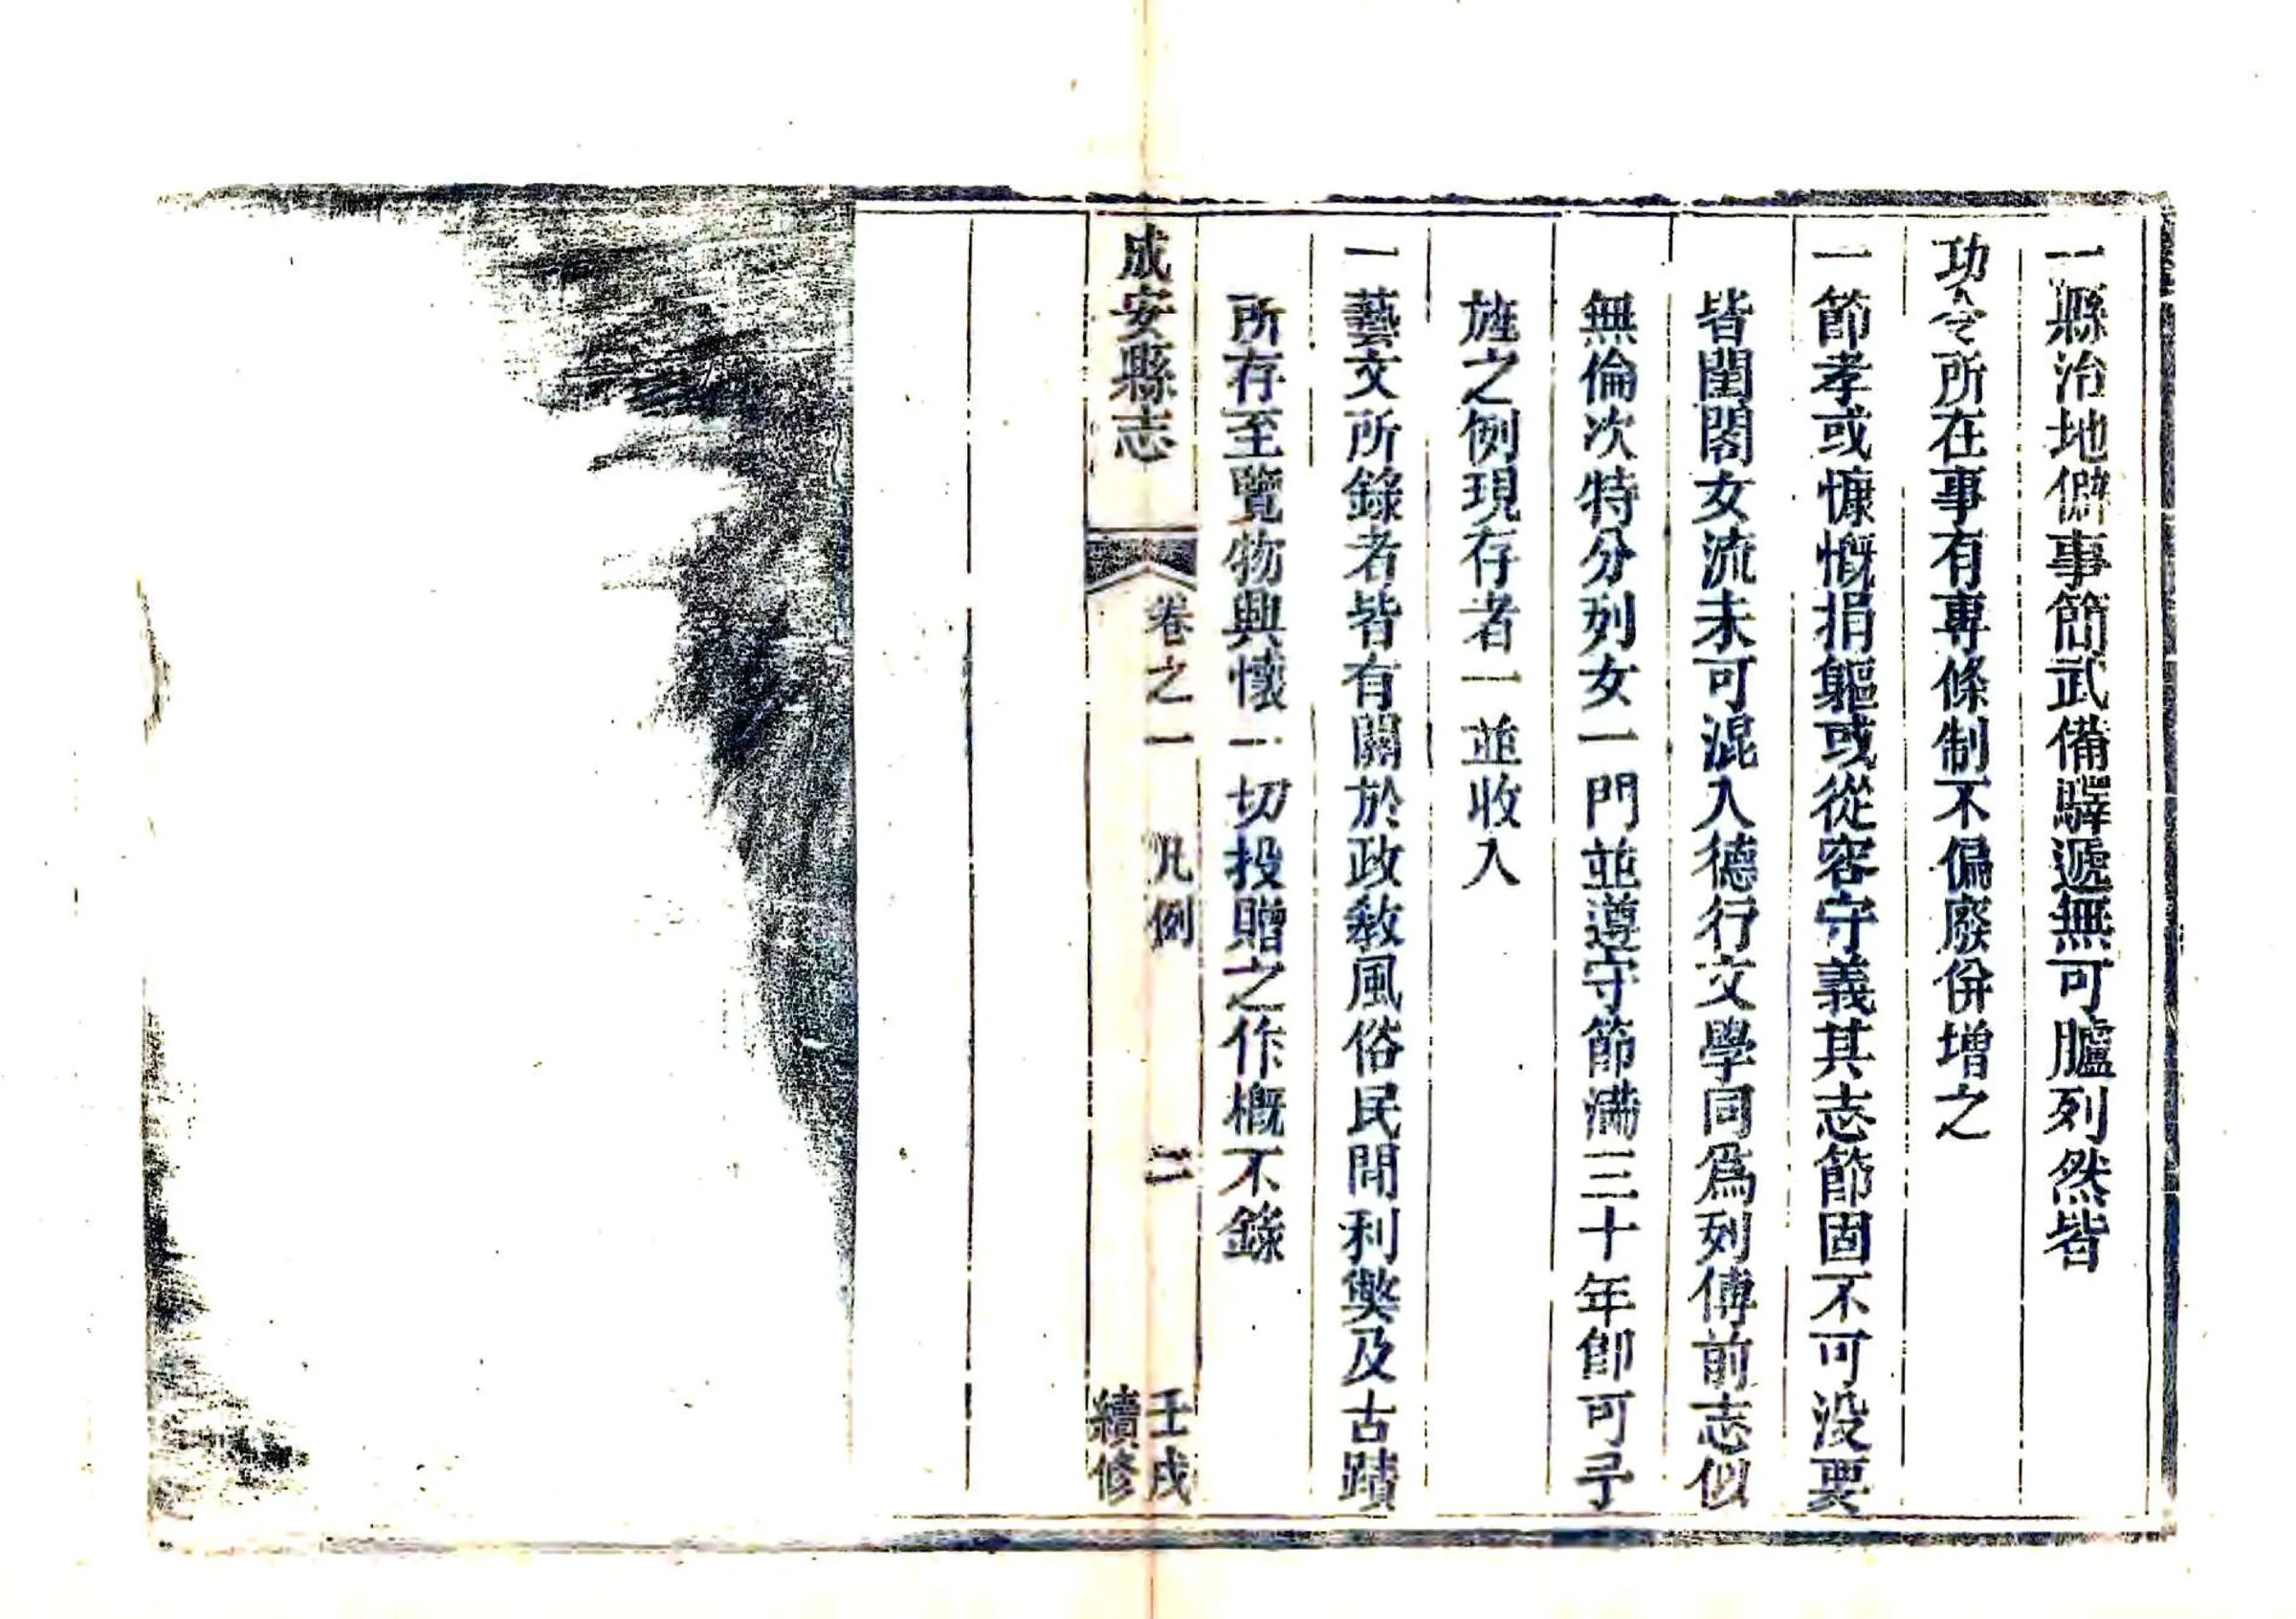 一縣治地僻事簡武備驛遞無可臚列然皆
功令所在事有專條制不偏廢併增之
一節孝或慷慨捐軀或從容守義其志節固不可沒要
皆閨閣女流未可混入德行文學同爲列傳前志似
無倫次特分列女一門並遵守節滿三十年卽可予
旌之例現存者一並收入
一藝文所錄者皆有關於政敎風俗民間利獘及古蹟
所存至覽物興懷一切投贈之作槪不錄
成安縣志
卷之一 凡例 二
壬戌
續修